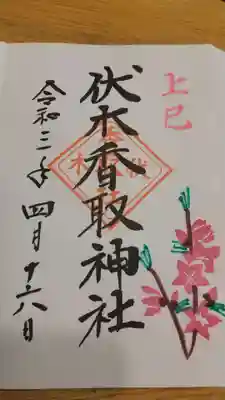 上巳
奉拝
伏木香取神社
令和三年四月十六日